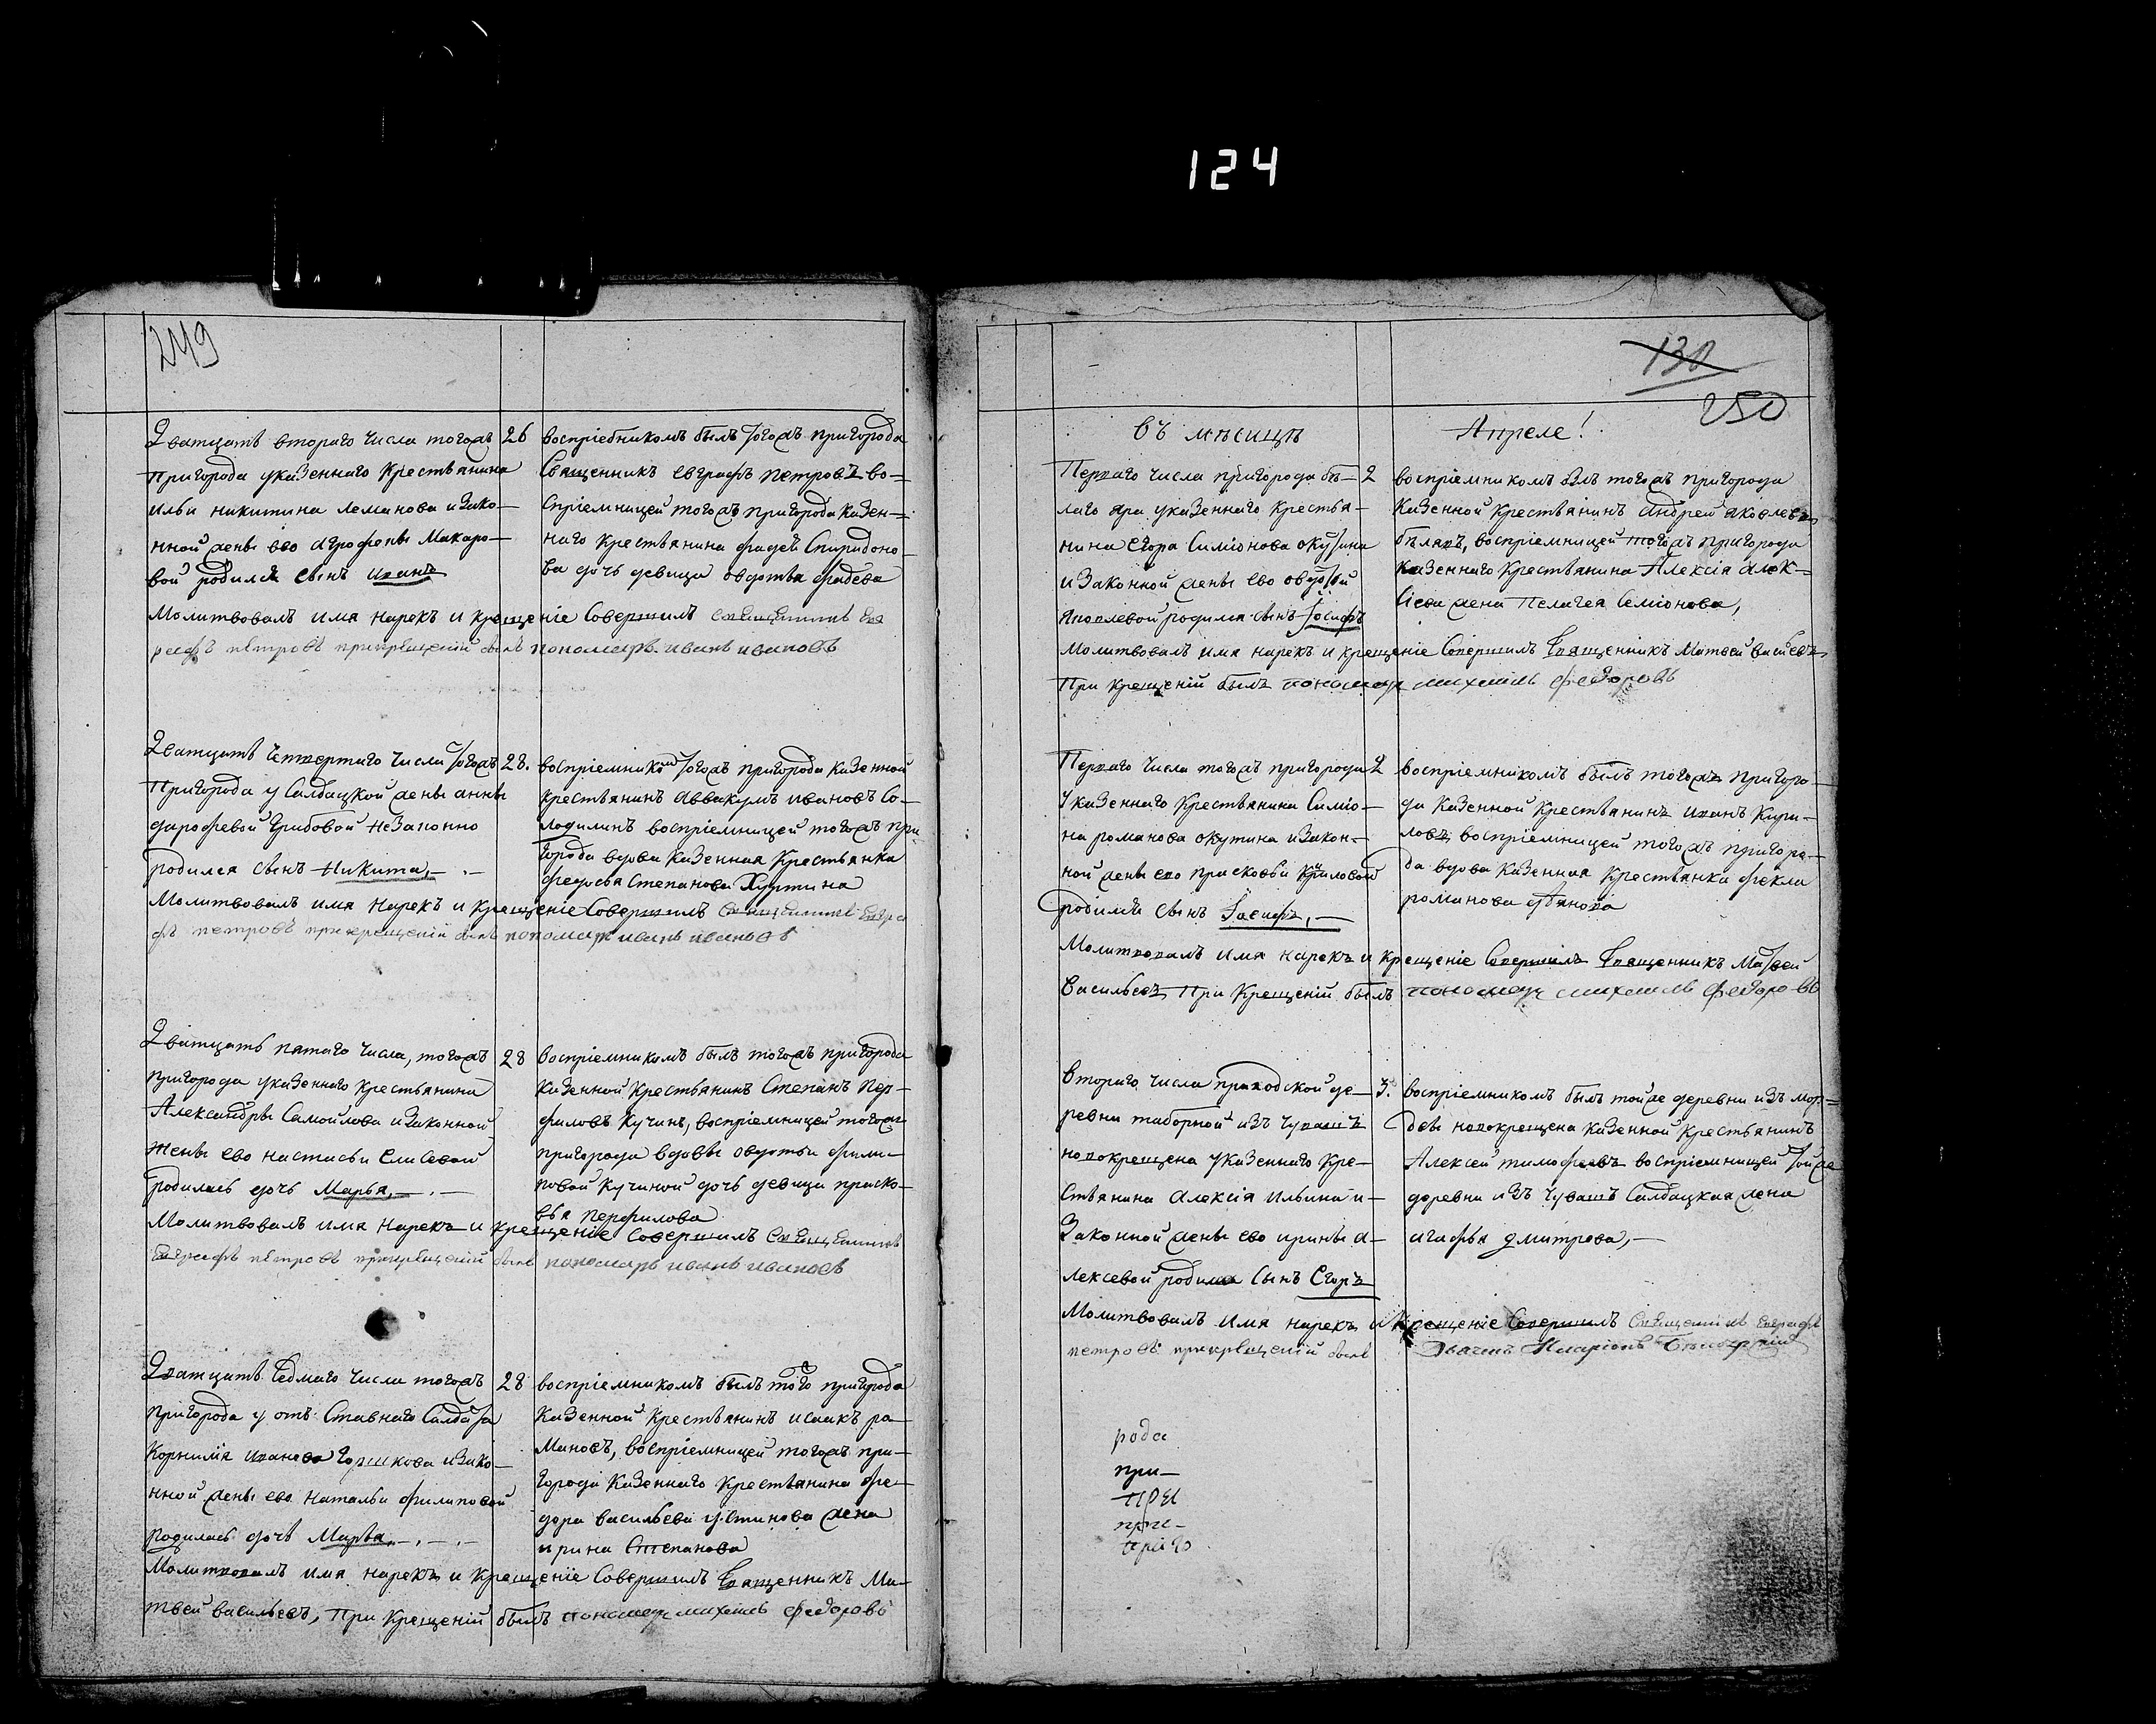 124
249
Дватцать втораго числа тогожъ 26
Пригорода указеннаго Крестьянина
Ильи никитина Леманова изако-
нной жены ево агрофены Макаро-
вой родился сынъ иванъ
воспріемникомъ былъ тогожъ пригорода
Священникъ евграфъ петровъ во-
спріемницей тогожъ пригорода казен-
наго крестьянина фадея Спиридоно-
ва дочь девица овдотья фадева
Молитвовалъ имя нарекъ и крещеніе Совершилъ священникъ Евг
рафъ петровъ прикрещеній былъ пономарь иванъ ивановъ
Дватцать четвертаго числа тогожъ 28.
Пригорода у Салдацкой жены анны
дарофевой Грибовой незаконно
родился сынъ Никита,
воспріемником тогожъ пригорода казенной
крестьянинъ аввакумъ ивановъ Со-
лодилинъ воспріемницей тогожъ при
города вдова казенная крестьянка
федосья Степанова
Молитвовалъ имя Нарекъ и Крещеніе Совершилъ священникъ Евгра
фъ петровъ прикрещеній былъ пономарь иванъ ивановъ
Дватцать пятаго числа, тогожъ 28
пригорода указеннаго крестьянина
Александры Самойлова изаконной
жены ево настасьи Елисевой
родилась дочь Марья,
воспріемникомъ былъ тогожъ пригорода
казенной крестьянинъ Степанъ Пер-
филовъ Кучинъ, воспріемницей тогожъ
пригорода вдовы овдотьи фили-
повой Кучиной дочь девица праско-
вья перфилова
Молитвовалъ имя нарекъ и крещеніе Совершилъ священникъ
Евграфъ петровъ прикрещеній былъ пономарь иванъ ивановъ
Дватцать Седмаго числа тогожъ 28
пригорода у отъ Ставнаго Салдата
Корнилія иванова Горшкова изако-
нной жены ево Натальи филиповой
родилась дочь Марья,
воспріемникомъ былъ того пригорода
казенной крестьянинъ исаакъ ро-
мановъ, воспріемницей тогожъ при-
города казеннаго крестьянина фе-
дора васильева устинова жена
ирина Степанова
Молитвовалъ имя нарекъ и крещеніе Совершилъ Священникъ Ма-
твей васильевъ, при Крещеній былъ пономарь михаилъ федоровъ
130
250
Въ месяце Апреле!
Перваго числа пригорода бе- 2
лаго яра указеннаго Крестья-
нина Егора Симіонова окутина
и законной жены ево овдотьи
яковлевой родился сынъ Іосифъ
воспріемникомъ былъ тогожъ пригорода
казенной крестьянинъ андрей яковлевъ
белякъ, воспріемницей тогожъ пригорода
казеннаго Крестьянина Алексія алек-
сіева жена Пелагея Семіонова,
Молитвовалъ имя нарекъ и крещеніе Совершилъ Священникъ Матвей васильевъ,
При Крещеній былъ пономарь михаилъ федоровъ
Перваго числа тогожъ пригорода 2
указеннаго Крестьянина Симіо-
на романова окутина изакон-
ной жены ево прасковьи Кириловой
родился сынъ Іосифъ,
воспріемникомъ былъ тогожъ пригоро-
да казенной Крестьянинъ иванъ Кири-
ловъ воспріемницей тогожъ пригоро-
да вдова казенная Крестьянка фекла
романова
Молитвовалъ имя нарекъ и крещеніе Совершилъ Священникъ Матвей
Васильевъ При Крещеній былъ пономарь михаилъ федоровъ
Втораго числа приходской де- 3.
ревни таборной изъ чувашъ
новокрещена указеннаго Кре-
стьянина алексія ильина и-
Законной жены ево ирины а-
лексевой родился Сынъ Егоръ
воспріемникомъ былъ тойже деревни изъ мор-
двы новокрещена казенной Крестьянинъ
Алексей тимофеевъ воспріемницей тойже
деревни изъ чувашъ Салдацкая жена
агафья дмитрева,
Молитвовалъ имя нарекъ и крещеніе Совершилъ Священникъ Евграфъ
петровъ прикрещеній былъ Дьячекъ Иларіонъ
рода
при-
при